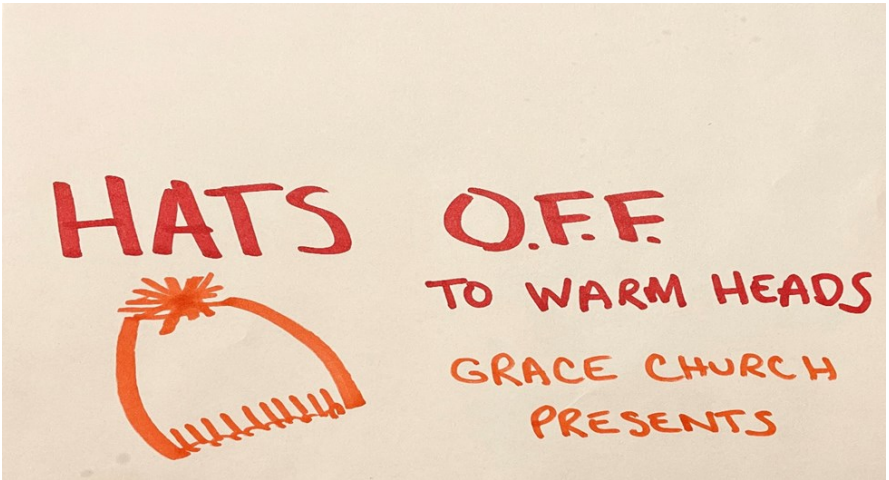 HATS O.F.F.
TO WARM HEADS
GRACE CHURCH
PRESENTS